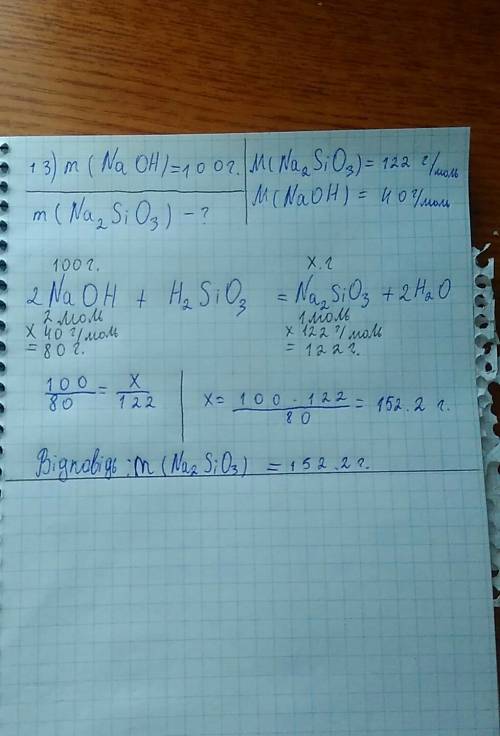 13) m (NaOH) = 100г. M(Na₂SiO₃) = 122 г/моль
m(Na₂SiO₃) - ? M(NaOH) = 40 г/моль
100г. x.г
2NaOH + H₂SiO₃ = Na₂SiO₃ + 2H₂O
2моль 1моль
x 40 г/моль x 122 г/моль
= 80 г. = 122 г.
100/80 = x/122 x = 100 · 122/80 = 152.2 г.
Відповідь: m (Na₂SiO₃) = 152.2 г.